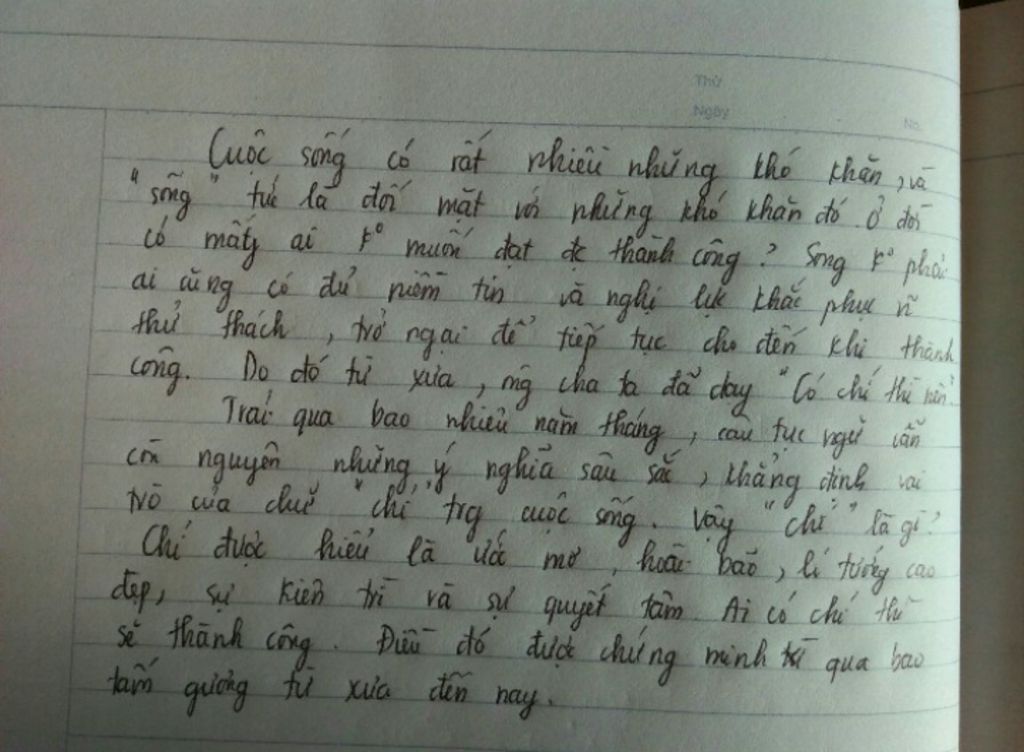 Thứ
Ngày
No.
Cuộc sống có rất nhiều những khó khăn, và
"sống" tức là đối mặt với những khó khăn đó. Ở đời
có mấy ai k° muốn đạt đc thành công? Song k° phải
ai cũng có đủ niềm tin và nghị lực khắc phục
thử thách, trở ngại để tiếp tục cho đến khi thành
công. Do đó từ xưa, ông cha ta đã dạy "Có chí thì nên".
Trải qua bao nhiêu năm tháng, câu tục ngữ vẫn
còn nguyên những ý nghĩa sâu sắc, khẳng định vai
trò của chữ "chí" trg cuộc sống. Vậy "chí" là gì?
Chí được hiểu là ước mơ, hoài bão, lí tưởng cao
đẹp, sự kiên trì và sự quyết tâm. Ai có chí thì
sẽ thành công. Điều đó được chứng minh qua bao
tấm gương từ xưa đến nay.